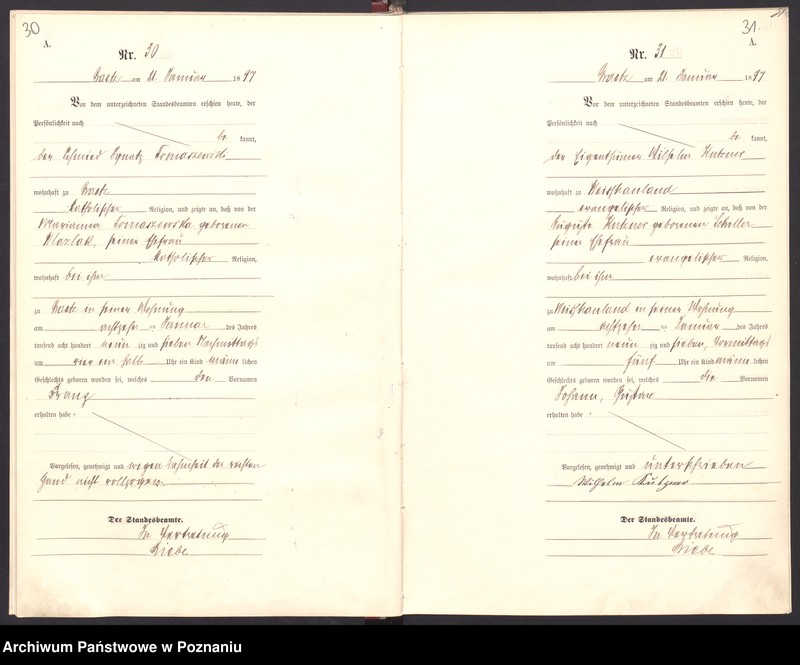 30
A.
Nr. 30
am 21. Januar 1897
Vor dem unterzeichneten Standesbeamten erschien heute, der
Persönlichkeit nach
be kannt,
der Schmied Ignatz Tomaszewski
wohnhaft zu
katholischer Religion, und zeigte an, daß von der
Marianna Tomaszewska geborenen
seiner Ehefrau
katholischer Religion,
wohnhaft bei ihm
zu in seiner Wohnung
am achtzehn ten Januar des Jahres
tausend acht hundert neun zig und sieben Nachmittags
um vier ein halb Uhr ein Kind männ lichen
Geschlechts geboren worden sei, welches den Vornamen
Franz
erhalten habe.
Vorgelesen, genehmigt und wegen der rechten
Hand nicht vollzogen.
Der Standesbeamte.
In Vertretung
31.
A.
Nr. 31
am 21. Januar 1897
Vor dem unterzeichneten Standesbeamten erschien heute, der
Persönlichkeit nach
be kannt,
der Eigenthümer Wilhelm Kutzner
wohnhaft zu
evangelischer Religion, und zeigte an, daß von der
Auguste Kutzner geborenen Schiller
seiner Ehefrau
evangelischer Religion,
wohnhaft bei ihm
zu in seiner Wohnung
am achtzehn ten Januar des Jahres
tausend acht hundert neun zig und sieben, Vormittags
um fünf Uhr ein Kind männ lichen
Geschlechts geboren worden sei, welches die Vornamen
Johann, Gustav
erhalten habe.
Vorgelesen, genehmigt und unterschrieben
Wilhelm Kutzner
Der Standesbeamte.
In Vertretung
Archiwum Państwowe w Poznaniu